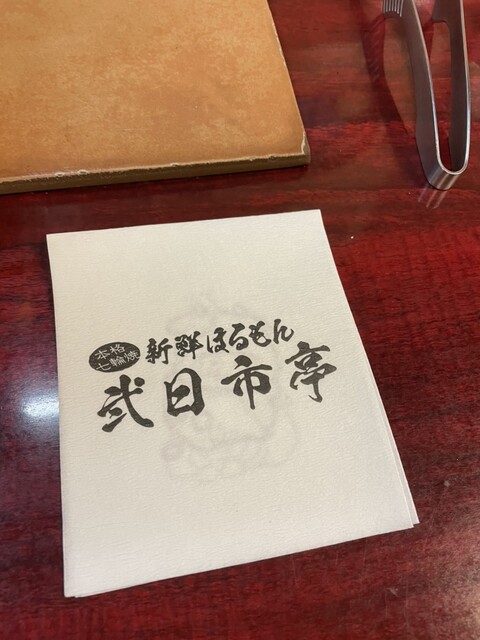 本格
七輪焼
新鮮ほるもん
弐日市亭